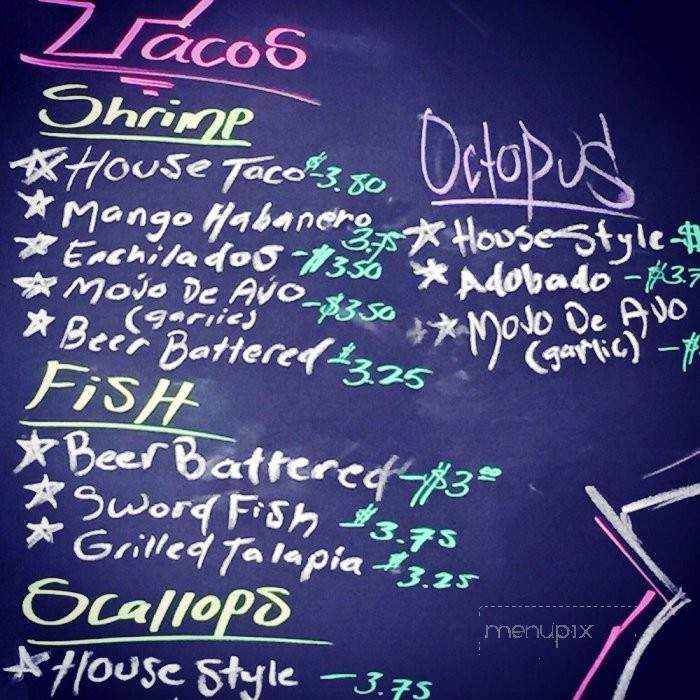 Tacos
Shrimp
House Taco $-3.80
Mango Habanero
3.75
Enchilados -$3.50
Mojo De AJo -$3.50
(garlic)
Beer Battered $3.25
FisH
Beer Battered -$3.00
Sword Fish $3.75
Grilled Talapia -$3.25
Scallops
House Style -3.75
Octopus
House Style -$
Adobado -$3.7
Mojo De AJo
(garlic) -$
menupix